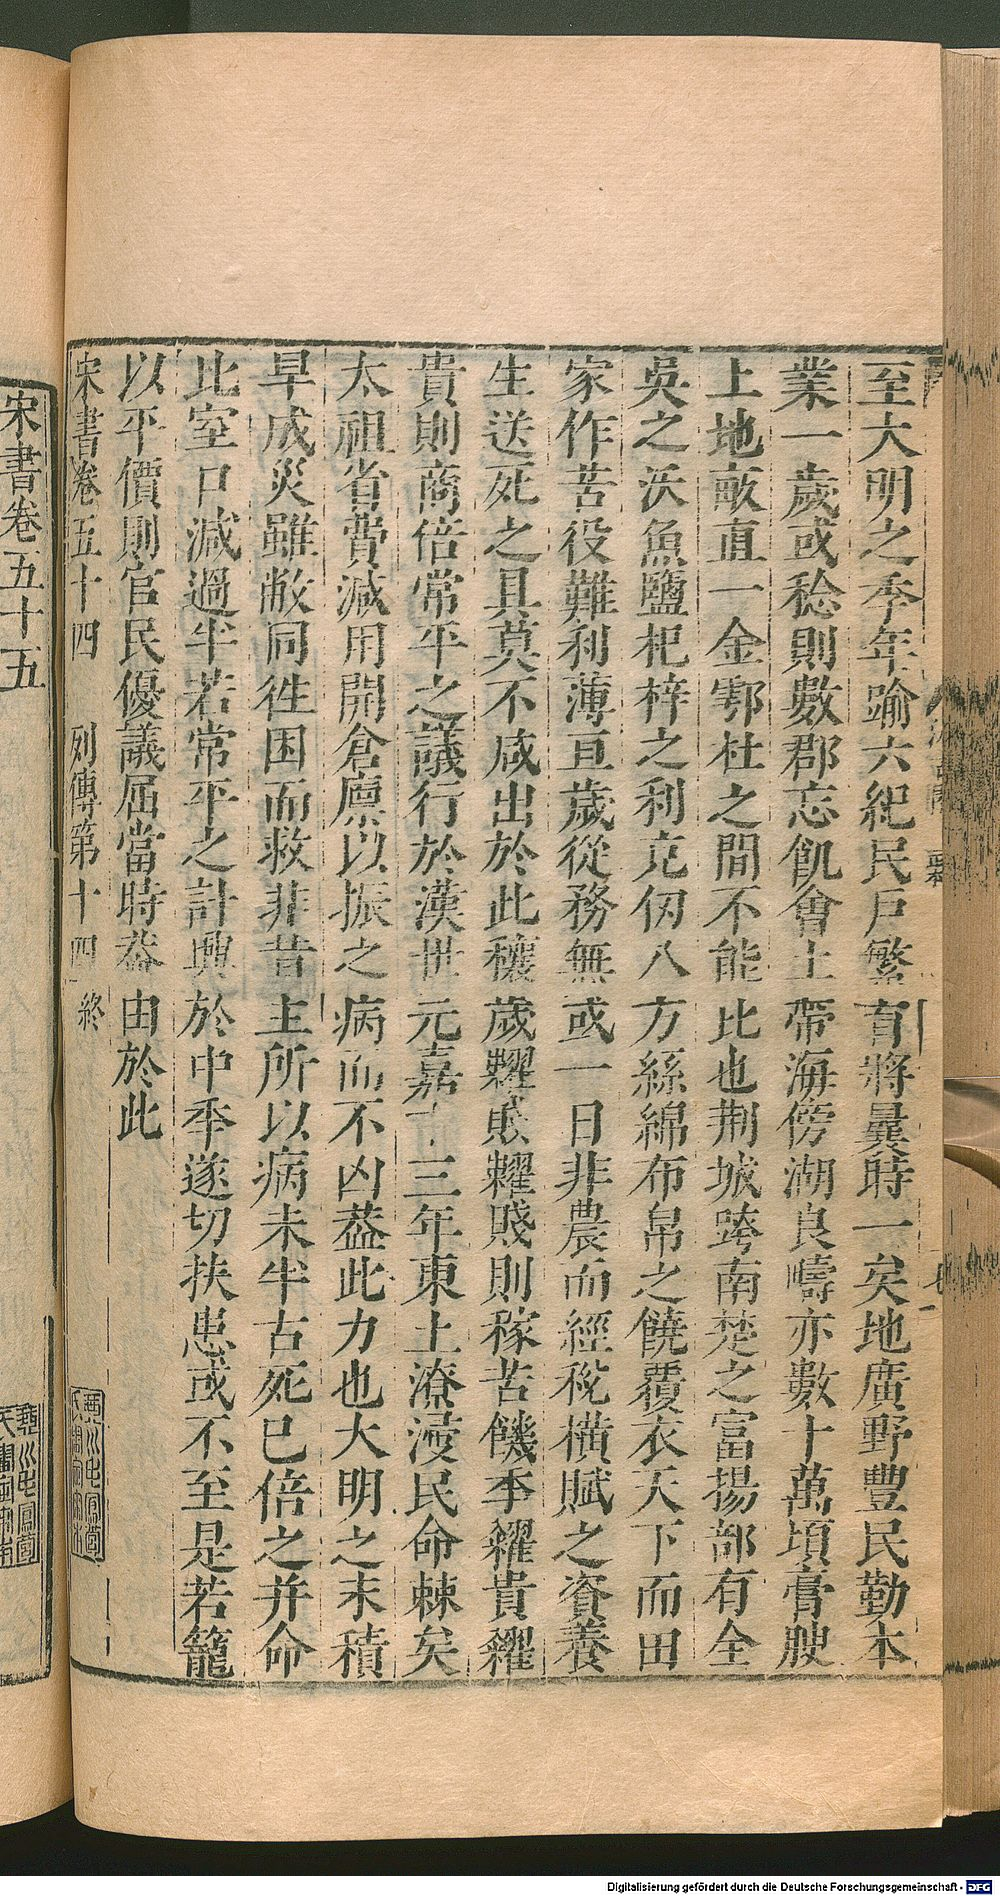 至大明之季年踰六紀民戶繁育將曩時一矣地廣野豐民勤本
業一歲或稔則數郡忘飢會土帶海傍湖良疇亦數十萬頃膏腴
上地畝直一金鄠杜之間不能比也荆城跨南楚之富揚部有全
吳之沃魚鹽杞梓之利充仞八方絲綿布帛之饒覆衣天下而田
家作苦役難利薄亘歲從務無或一日非農而經稅橫賦之資養
生送死之具莫不咸出於此穰歲糶賤糶賤則稼苦饑季糴貴糴
貴則商倍常平之議行於漢世元嘉十三年東土潦浸民命棘矣
太祖省費減用開倉廩以振之病而不凶葢此力也大明之末積
旱成災雖敝同徃困而救非昔主所以病未半古死已倍之并命
比室口減過半若常平之計興於中季遂切扶患或不至是若籠
以平價則官民優議屈當時葢由於此
宋書卷五十四 列傳第十四 終
宋書卷五十五
Digitalisierung gefördert durch die Deutsche Forschungsgemeinschaft - DFG